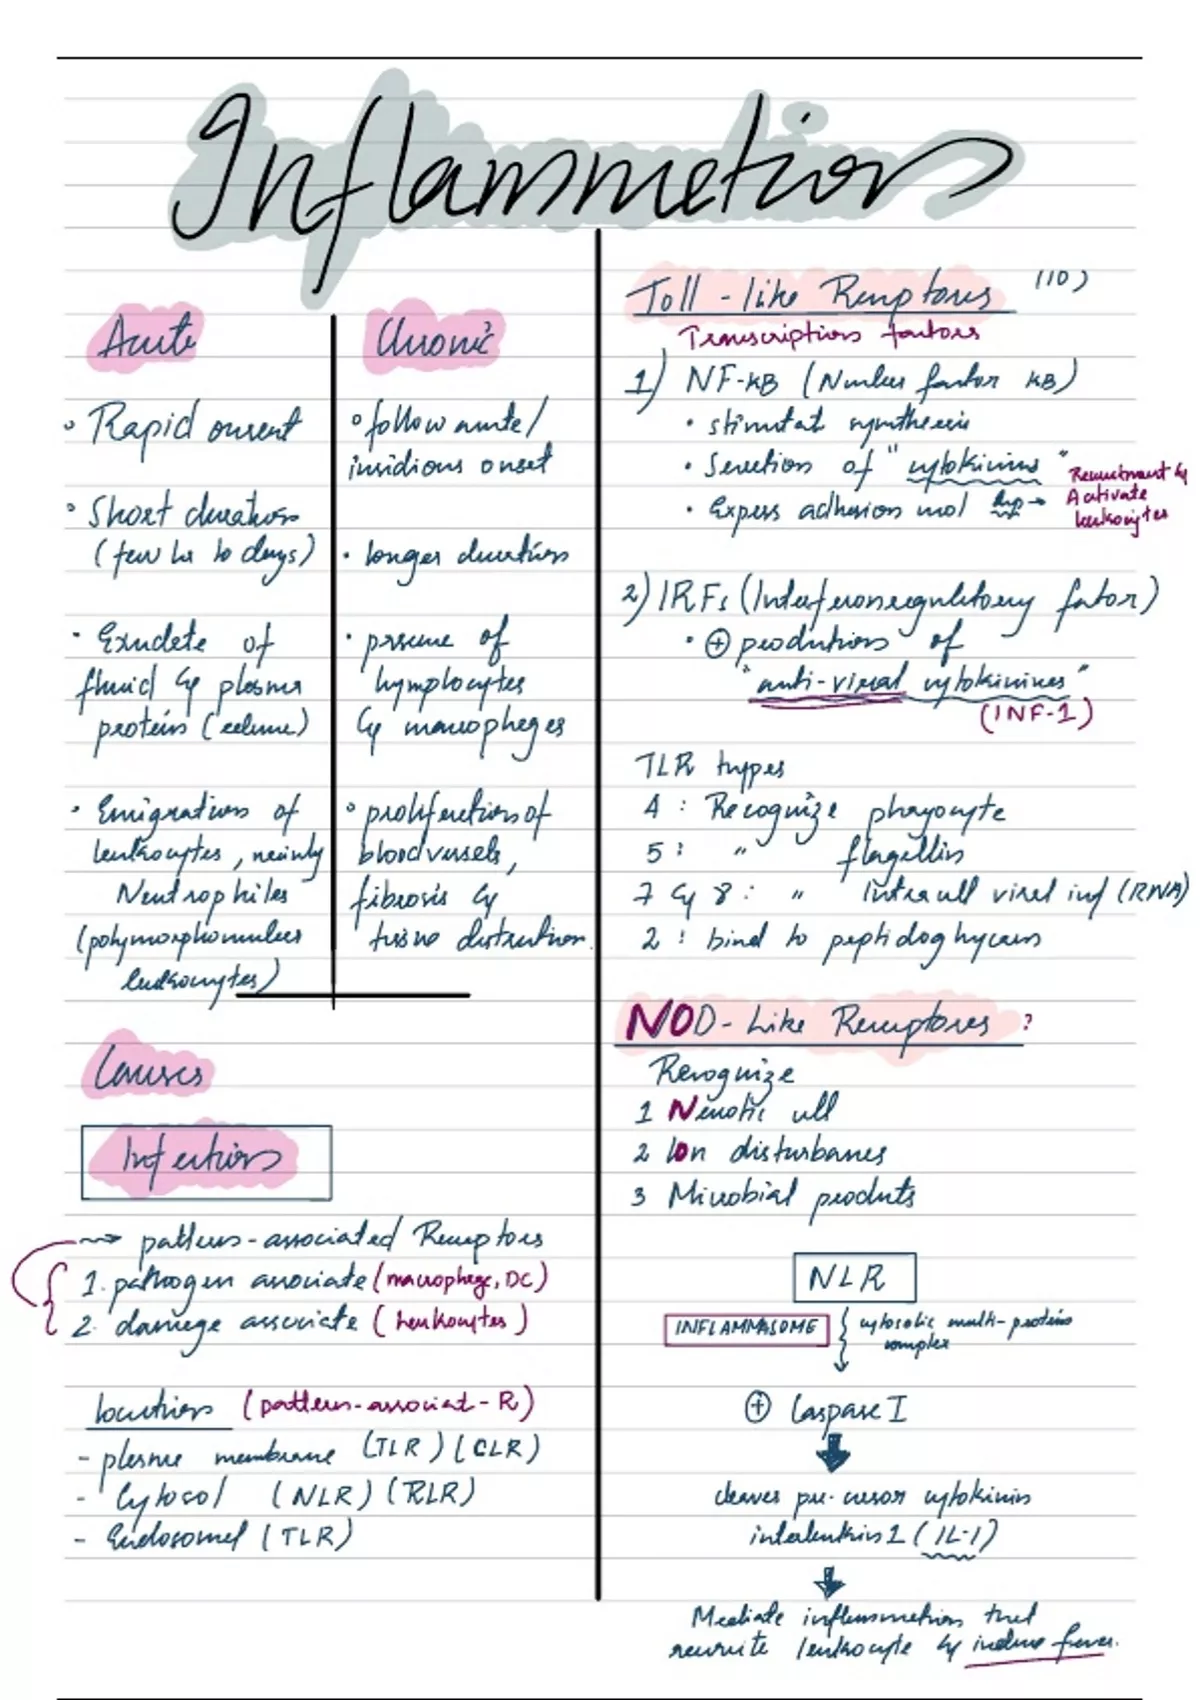 Inflammetion
Acute
• Rapid onset
• Short duration
(few hr to days)
• Exudete of
fluid & plasma
protein (edema)
• Emigration of
leukocytes, mainly
Neutrophiles
(polymorphonucleus
leukocytes)
Chronic
• follow acute/
insidious onset
• longer duration
• presence of
lymphocytes
& macropheges
• proliferction of
blood vessels,
fibrosis &
tissue distruction.
Causes
Infection
→ pattern-associated Receptors
1. pathogen associate (macrophege, DC)
2. damege associate (leukocytes)
locations (pattern-associat-R)
- plesme membrane (TLR) (CLR)
- Cytosol (NLR) (RLR)
- Endosomel (TLR)
Toll-like Receptores (10)
Transcription factors
1) NF-KB (Nucleus factor KB)
• stimutat synthesis
• Secretion of "cytokinins"
• Express adhesion mol →
Recruitment &
Activate
leukocytes
2) IRFs (Interferonregulatory factor)
• ⊕ production of
"anti-viral cytokinines"
(INF-1)
TLR types
4 : Recognize phagocyte
5 : " flagellin
7 & 8 : " Intracell virel inf (RNA)
2 : bind to peptidoglycans
NOD-Like Receptores ?
Recognize
1 Necrotic cell
2 Ion disturbances
3 Microbial products
NLR
INFLAMMASOME
cytosolic multi-protein
complex
⊕ Caspase I
cleaves pre-cursor cytokinin
interleukin 1 (IL-1)
Mediate inflammetion that
recruite leukocyte & induce fever.